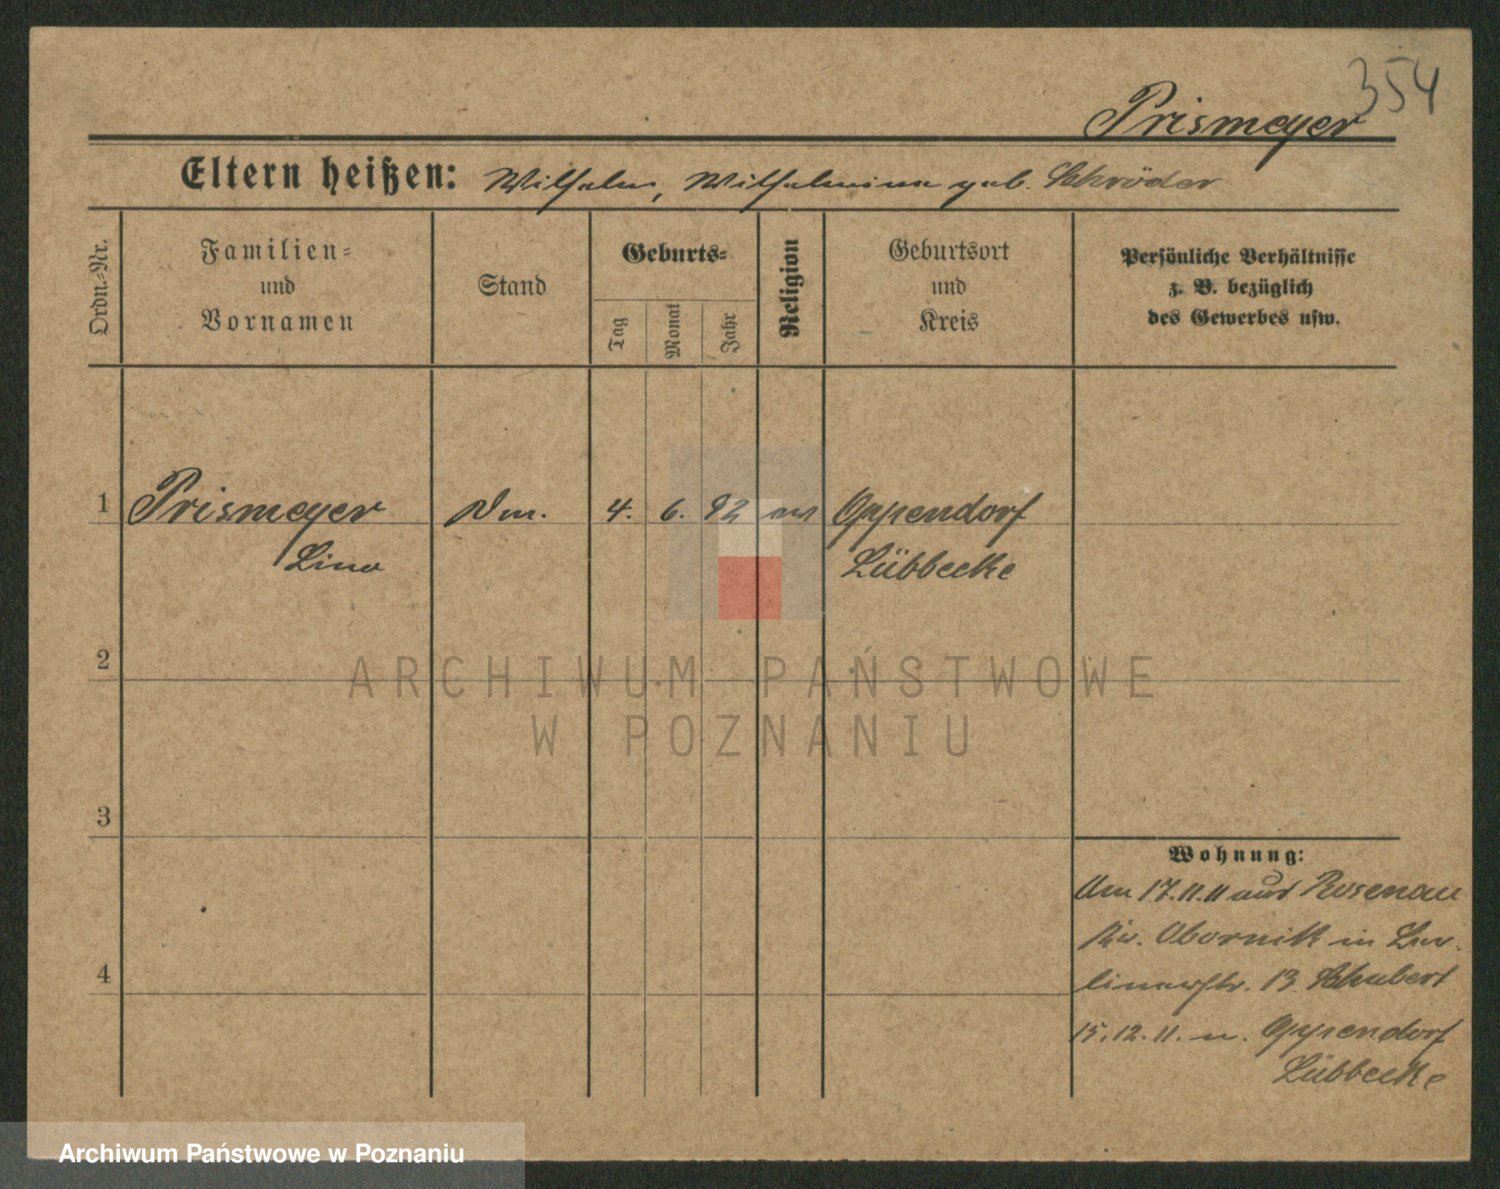 354
Prismeyer
Eltern heißen: Wilhelm, Wilhelmine geb. Schröder
Ordn.=Nr.
Familien=
und
Vornamen
Stand
Geburts=
Tag
Monat
Jahr
Religion
Geburtsort
und
Kreis
Persönliche Verhältnisse
z. B. bezüglich
des Gewerbes usw.
1 Prismeyer 4. 6. 92 ev Oppendorf
Lina Lübbecke
2
3
4
Wohnung:
Am 17.11.11 aus Rosenau
Kr. Obornik in Ber-
linerstr. 13. Schubert
15.12.11. n. Oppendorf
Lübbecke
ARCHIWUM PAŃSTWOWE
W POZNANIU
Archiwum Państwowe w Poznaniu